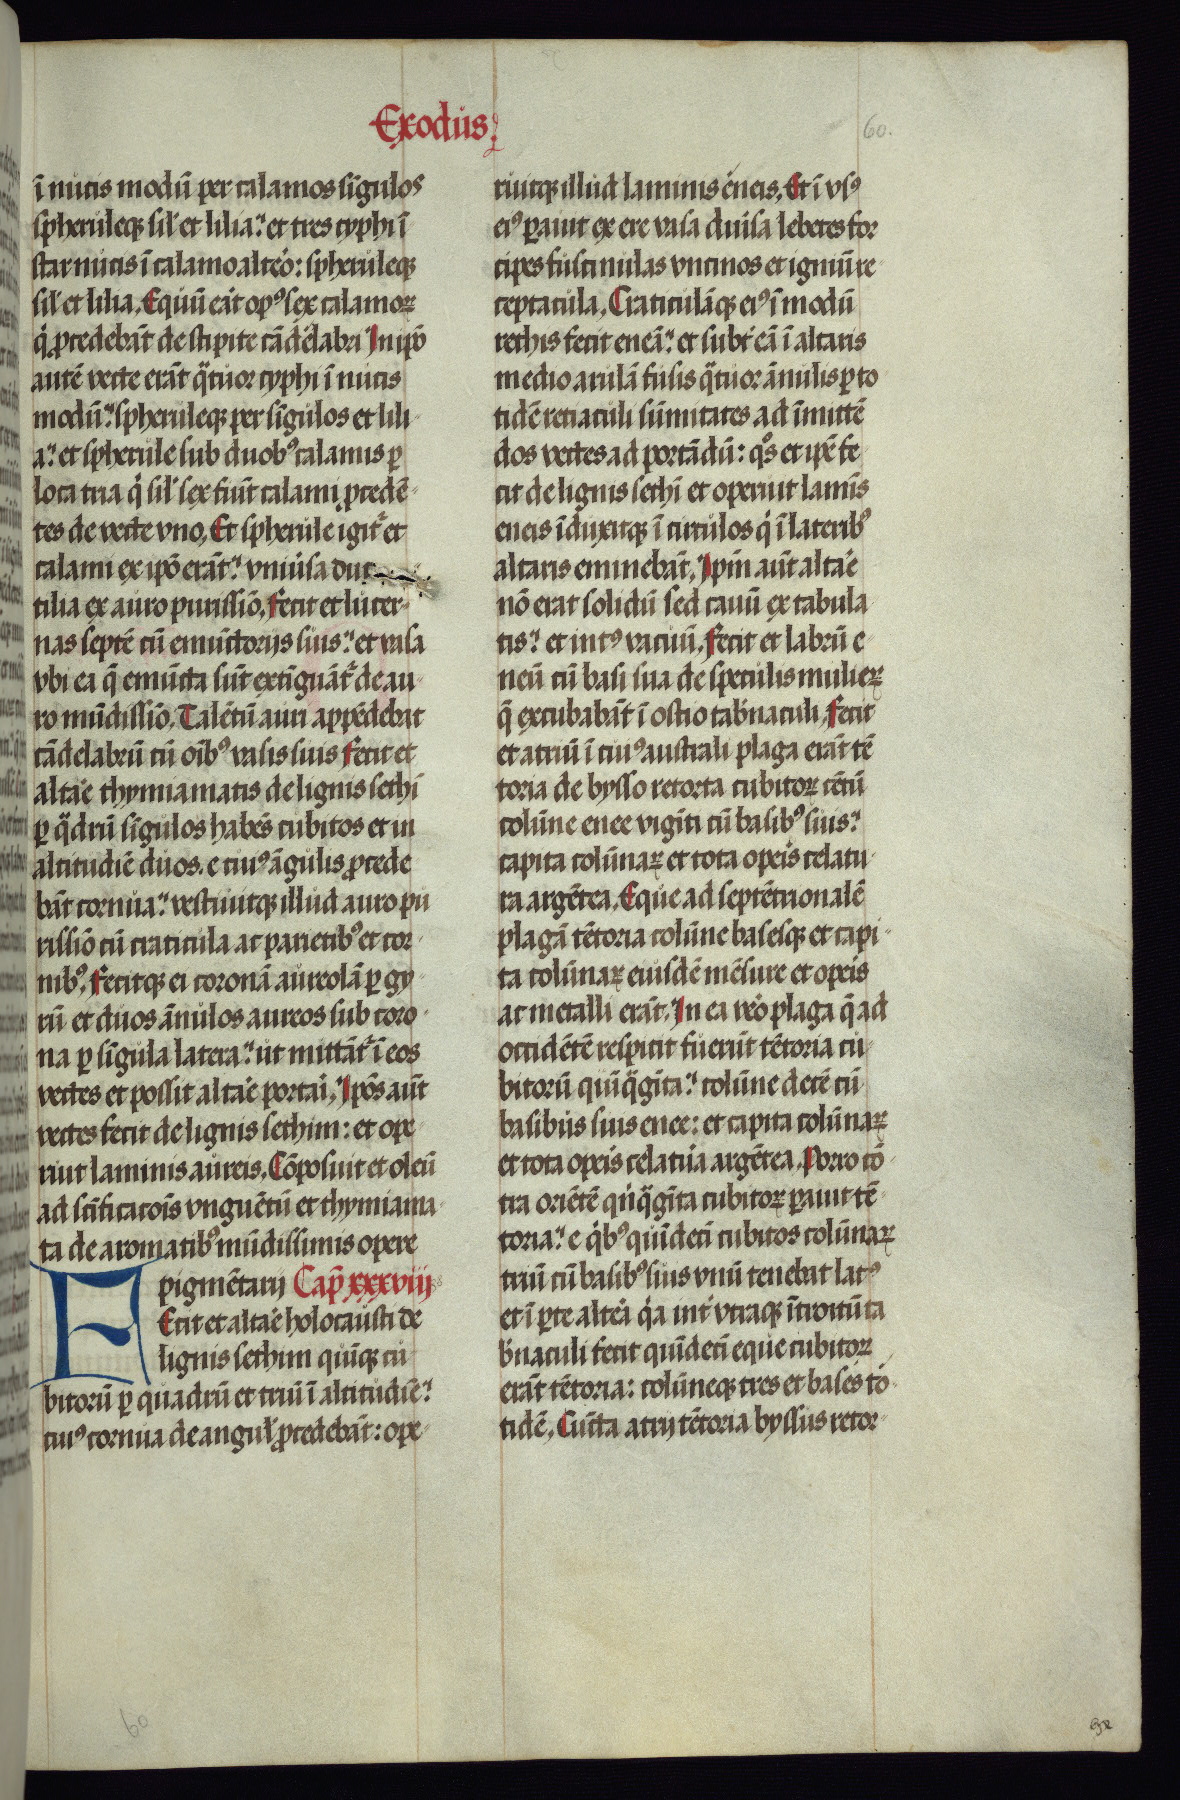 Exodus
60.
ī nucis modū per calamos sīgulos
spheruleq; sil' et lilia: et tres cyphi ī
star nucis ī calamo alteō: spheruleq;
sil' et lilia. Equū erāt opꝰ sex calamoꝝ
q̇ ꝓcedebāt de stipite cādelabri In ipō
autē vecte erāt q̄tuor cyphi ī nucis
modū: spheruleq; per sīgulos et lili
a: et spherule sub duobꝰ calamis ꝑ
loca tria q̇ sil' sex fiūt calami ꝓcedē
tes de vecte vno. Et spherule igit̄ et
calami ex ipō erāt: vniūsa duc
tilia ex auro purissīo. fecit et lucer
nas septē cū emūctorijs suis: et vasa
vbi ea q̄ emūcta sūt extīguāt̄ de au
ro mūdissīo. Talētū auri appēdebat
cādelabrū cū oībꝰ vasis suis fecit et
altar̄e thymiamatis de lignis sethī
ꝑ q̄drū sīgulos habēs cubitos et in
altitudīe duos. e cuiꝰ āgulis ꝓcede
bāt cornua: vestiuitq; illud auro pu
rissīo cū craticula ac parietibꝰ et cor
nibꝰ. fecitq; ei coronā aureolā ꝑ gy
rū et duos ānulos aureos sub coro
na ꝑ sīgula latera: ut mittāt̄ ī eos
vectes et possit altar̄e portar̄i. Ipōs aūt
vectes fecit de lignis sethim: et ope
ruit laminis aureis. Cōposuit et oleū
ad scīficacōis vnguētū et thymiama
ta de aromatibꝰ mūdissimis opere
pigmētarij Cap̄ xxxviij
F Ecit et altar̄e holocausti de
lignis sethim quīq; cu
bitorū ꝑ quadrū et triū ī altitudīe:
cuiꝰ cornua de angul' ꝓcedebāt: ope
ruitq; illud laminis ēneis. Et ī vsꝰ
eiꝰ ꝑauit ex ere vasa diūsa lebetes for
cipes fuscinulas vncinos et igniū re
ceptacula. Craticulāq; eiꝰ ī modū
rethis fecit eneā: et subt̄ eā ī altaris
medio arulā fusis q̄tuor ānulis ꝑ to
tidē retiaculi sūmitates ad īmittē
dos vectes ad portādū: q̊s et ipē fe
cit de lignis sethī et operuit lamīs
eneis īduxitq; ī circulos q̇ ī lateribꝰ
altaris eminebāt. Ipm̄ aūt altar̄e
nō erat solidū sed cauū ex tabula
tis: et intꝰ vacuū. fecit et labrū e
neū cū basi sua de speculis mulieꝝ
q̄ excubabāt ī ostio tab̄naculi. fecit
et atriū ī cuiꝰ australi plaga erāt tē
toria de bysso retorta cubitoꝝ cētū
colūne enee vigīti cū basibꝰ suis:
capita colūnaꝝ et tota opeis celatu
ra argētea. Eque ad septētrionalē
plagā tētoria colūne basesq; et capi
ta colūnaꝝ eiusdē mēsure et opeis
ac metalli erāt. In ea vēo plaga q̄ ad
occidētē respicit fuerūt tētoria cu
bitorū quīq̄gīta: colūne decē cū
basibus suis enee: et capita colūnaꝝ
et tota opeis celatura argētea. Porro cō
tra oriētē quīq̄gīta cubitoꝝ ꝑauit tē
toria: e q̇bꝰ quīdecī cubitos colūnaꝝ
triū cū basibꝰ suis vnū tenebat latꝰ
et ī ꝑte alteā q̇a int̄ vtraq; ītroitū ta
b̄naculi fecit quīdecī eque cubitoꝝ
erāt tētoria: colūneq; tres et bases to
tidē. Cūcta atrij tētoria byssus retor
60